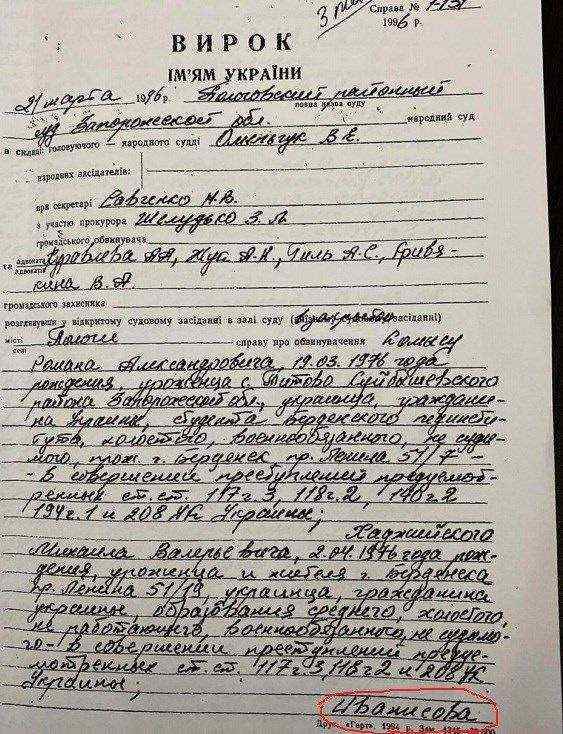 Справа №
1996 р.
ВИРОК
ІМ'ЯМ УКРАЇНИ
21 марта 1996 р. Пологовский районный
повна назва суду
суд Запорожской обл. народний суд
в складі: головуючого — народного судді Омельчук В.Е.
народних засідателів:
при секретарі Савченко Н.В.
з участю прокурора Шелудько З.Л.
громадського обвинувача
та адвоката Журавлева А.А, Жук А.А, Гиль А.С, Гривя-
адвокатів
кина В.А.
громадського захисника
розглянувши у відкритому судовому засіданні в залі суду засіданні)
місті Пологи справу про обвинувачення
селі
Романа Александровича, 19.03.1976 года
рождения, уроженца с. Титово Куйбышевского
района Запорожской обл., украинца, граждани-
на Украины, студента Бердянского пединсти-
тута, холостого, военнообязанного, не суди-
мого, прож. г. Бердянск пр. Ленина 51/7 -
- В совершении преступлений предусмот-
ренных ст. ст. 117 ч.3, 118 ч.2, 140 ч.2
194 ч.1 и 208 УК Украины;
Хаджийского
Михаила Валерьевича, 2.04.1976 года рож-
дения, уроженца и жителя г. Бердянска
пр. Ленина 51/19, украинца, гражданина
украины, образования среднего, холостого,
не работающего, военнообязанного, не судимо-
го - в совершении преступлений преду-
смотренных ст. ст. 117 ч.3, 118 ч.2 и 208 УК
Украины;
Иванисова
Друк. 1994 р. Зам.